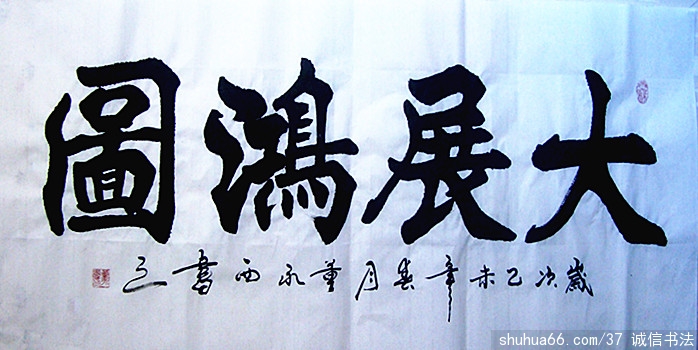 大展鴻圖
歲次乙未年春月董永西書之
shuhua66.com/37 诚信书法